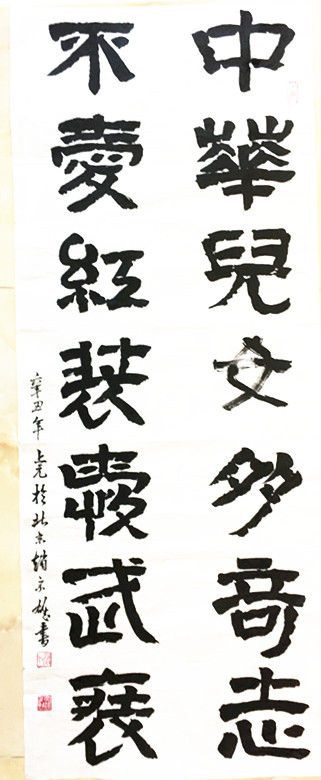 中華兒女多奇志
不愛紅裝愛武裝
辛丑年上元於北京趙京雄書